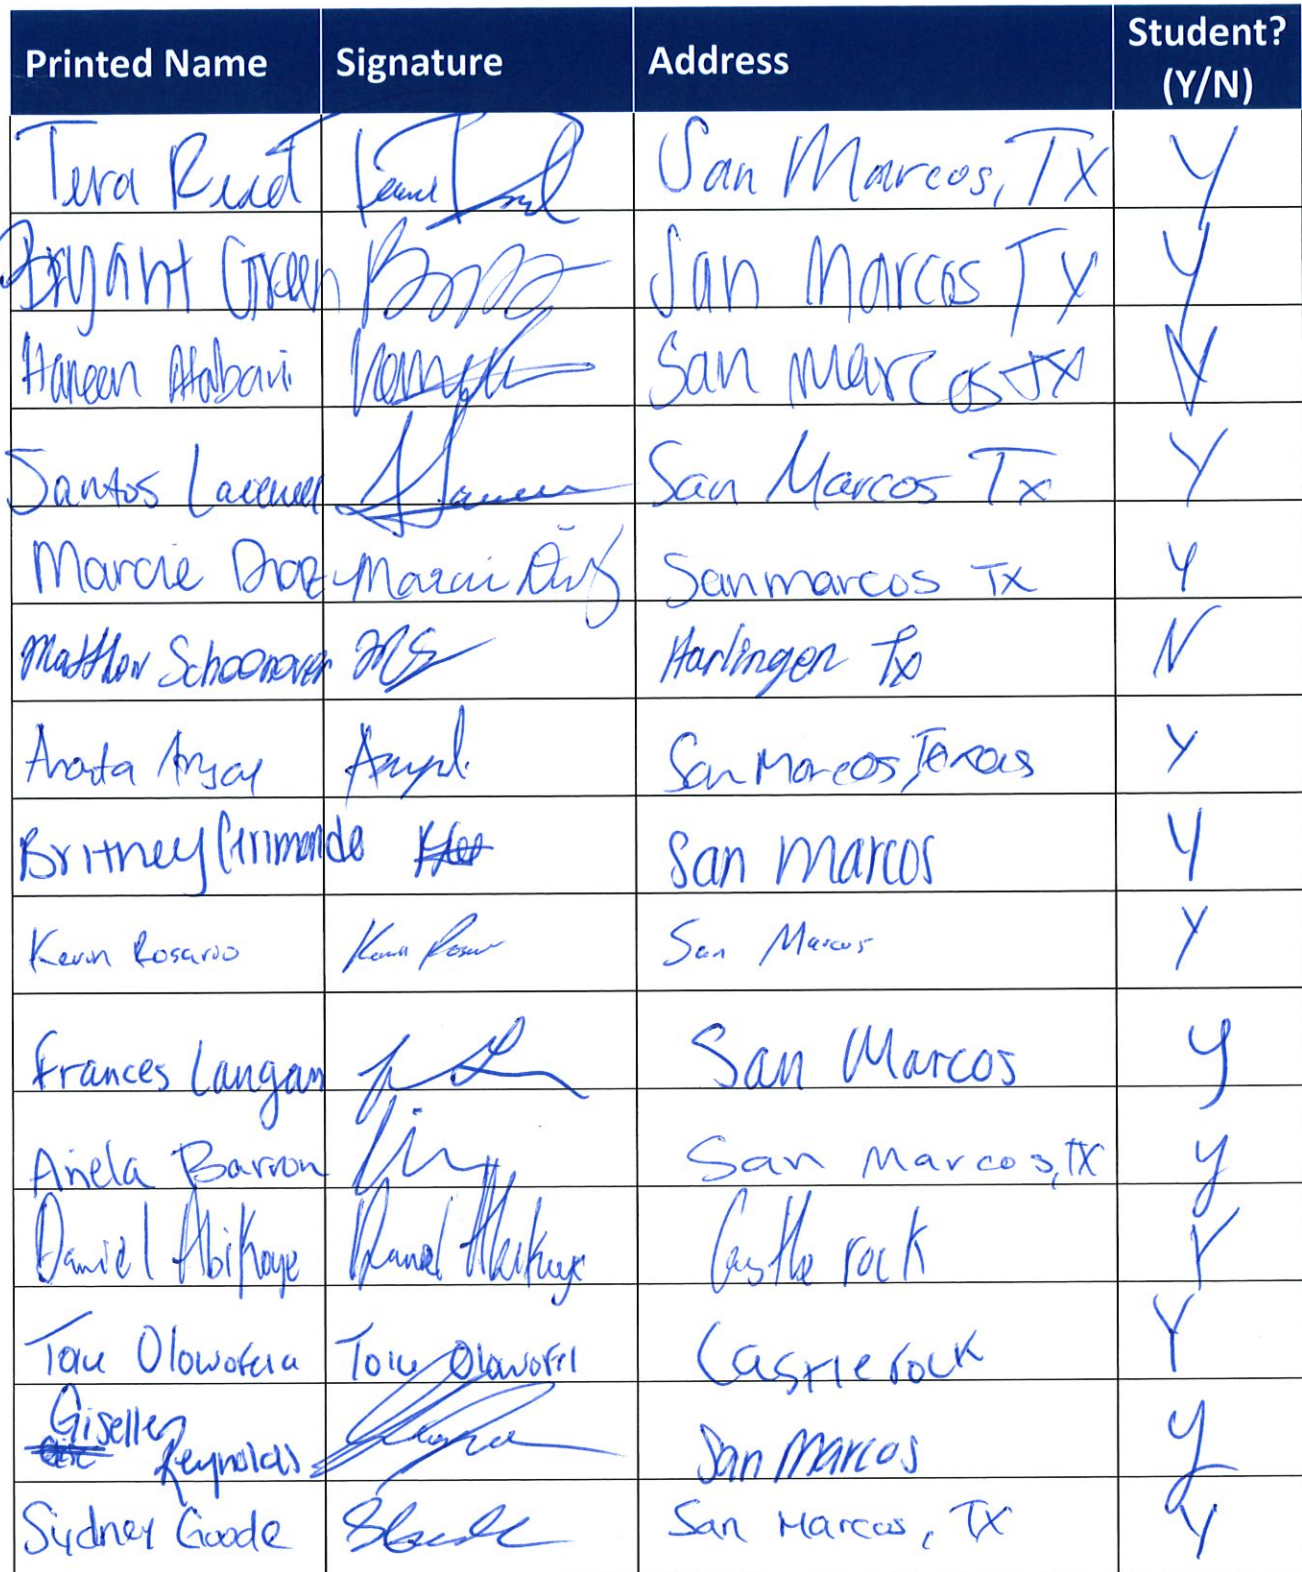 Printed Name Signature Address Student? (Y/N)
Tera Reed San Marcos, TX Y
Bryant Green San Marcos TX Y
Haneen Alabavi San Marcos TX Y
Santos San Marcos Tx Y
Marcie Diaz Marcie Diaz Sanmarcos TX Y
Matthew Schoonover MS Harlingen Tx N
San Marcos Texas Y
Britney Grimondo San Marcos Y
Kevin Rosario Kevin San Marcos Y
Frances Langan San Marcos y
Ariela Barron San Marcos, TX y
Daniel Abikoye Daniel Abikoye Castle rock Y
Olowofela Castle rock Y
Giselle Reynolds San Marcos y
Sydney Goode San Marcos, TX Y